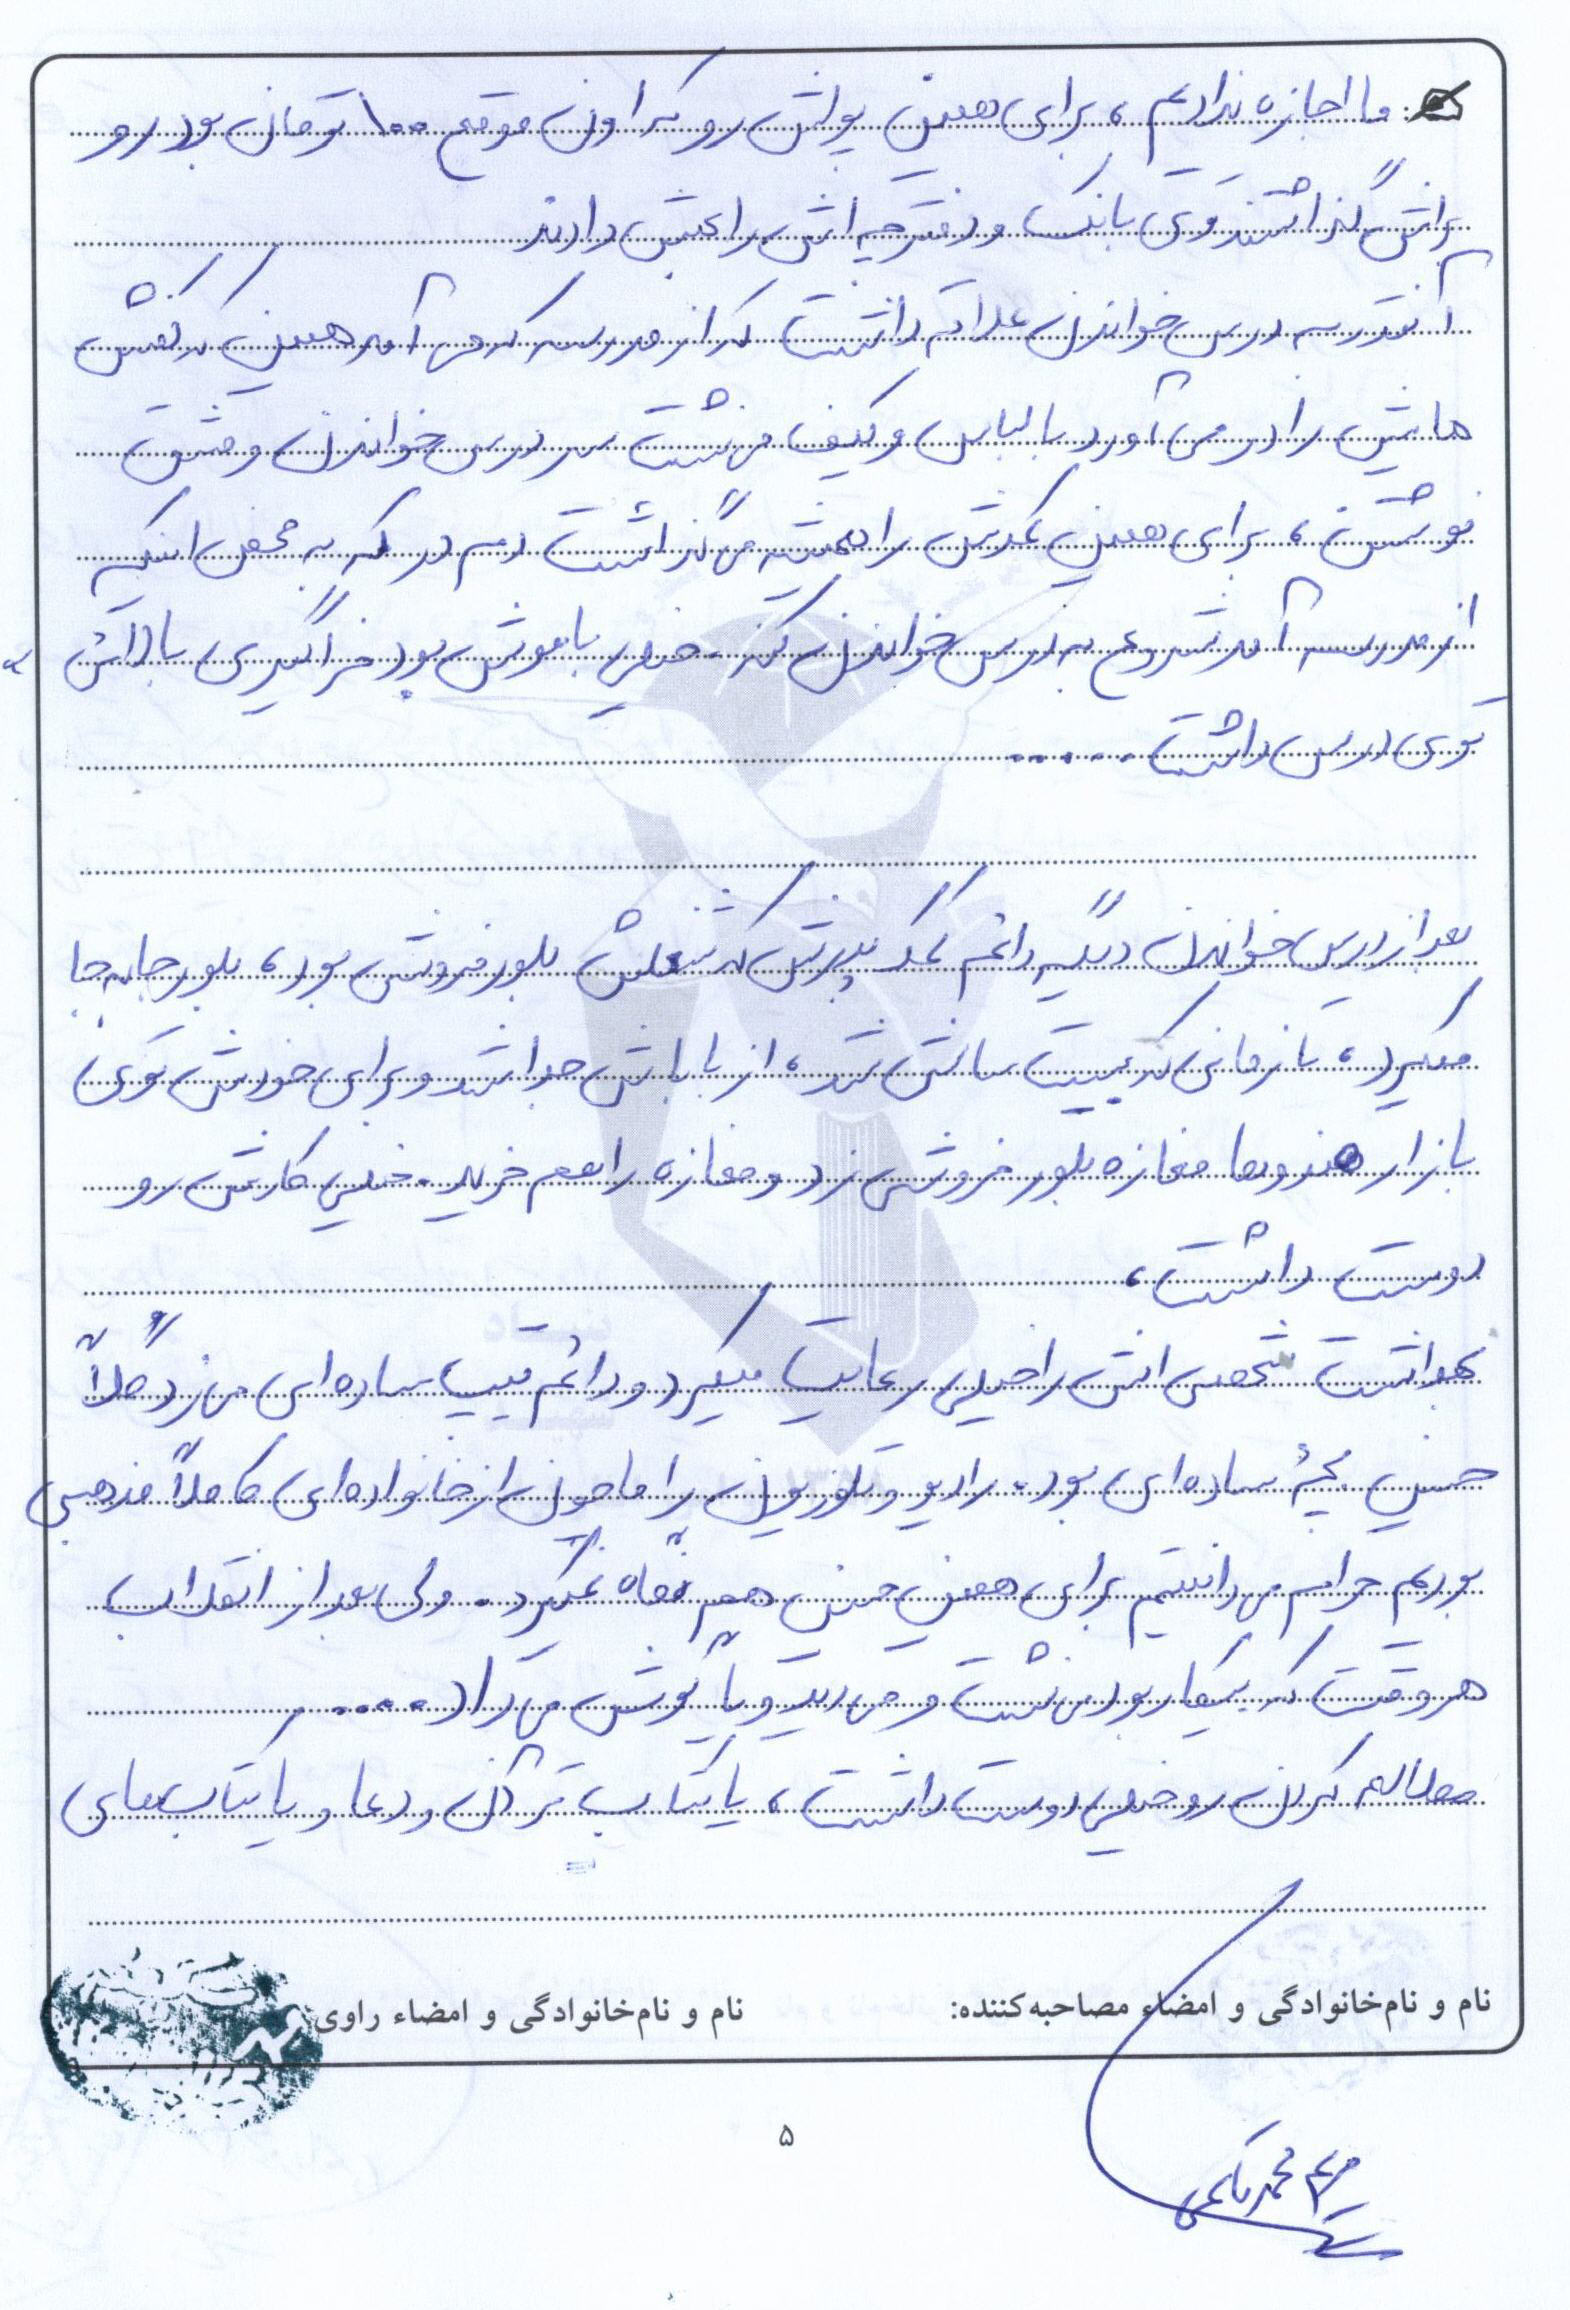 ما اجازه نداریم، برای همین پولش رو که اون موقع ۱۰۰ تومان بود رو
براش گذاشتند توی بانک و دفترچه اش را بهش دادند
آنقدر به درس خواندن علاقه داشت که از مدرسه که می آمد همین که کفش
هایش را در می آورد با لباس و کیف می نشست سر درس خواندن و مشق
نوشتن، برای همین کمدش را همیشه می گذاشت دم در که به محض اینکه
از مدرسه آمد شروع به درس خواندن کند. خیلی باهوش بود فراگیری بالائی
توی درس داشت ......
بعد از درس خواندن دیگه دائم کمک پدرش که شغلش بلور فروش بود، بلور جابه جا
میکرد، تا زمانی که بیست سالش شد، از باباش جدا شد و برای خودش توی
بازار هندوها مغازه بلور فروشی زد و مغازه را هم خرید. خیلی کارش رو
دوست داشت،
بهداشت شخصی اش را خیلی رعایت میکرد و دائم تیپ ساده ای می زد کلاً
خیلی بچۀ ساده ای بود. رادیو و تلوزیون را ما چون از خانواده ای کاملاً مذهبی
بودیم حرام می دانستیم برای همین حسن هم نگاه نمیکرد. ولی بعد از انقلاب
هر وقت که بیکار بود می نشست و می دید و یا گوش می داد ....
مطالعه کردن رو خیلی دوست داشت، یا کتاب قرآن و دعا و یا کتاب های
نام و نام‌خانوادگی و امضاء مصاحبه‌کننده:
نام و نام‌خانوادگی و امضاء راوی:
۵